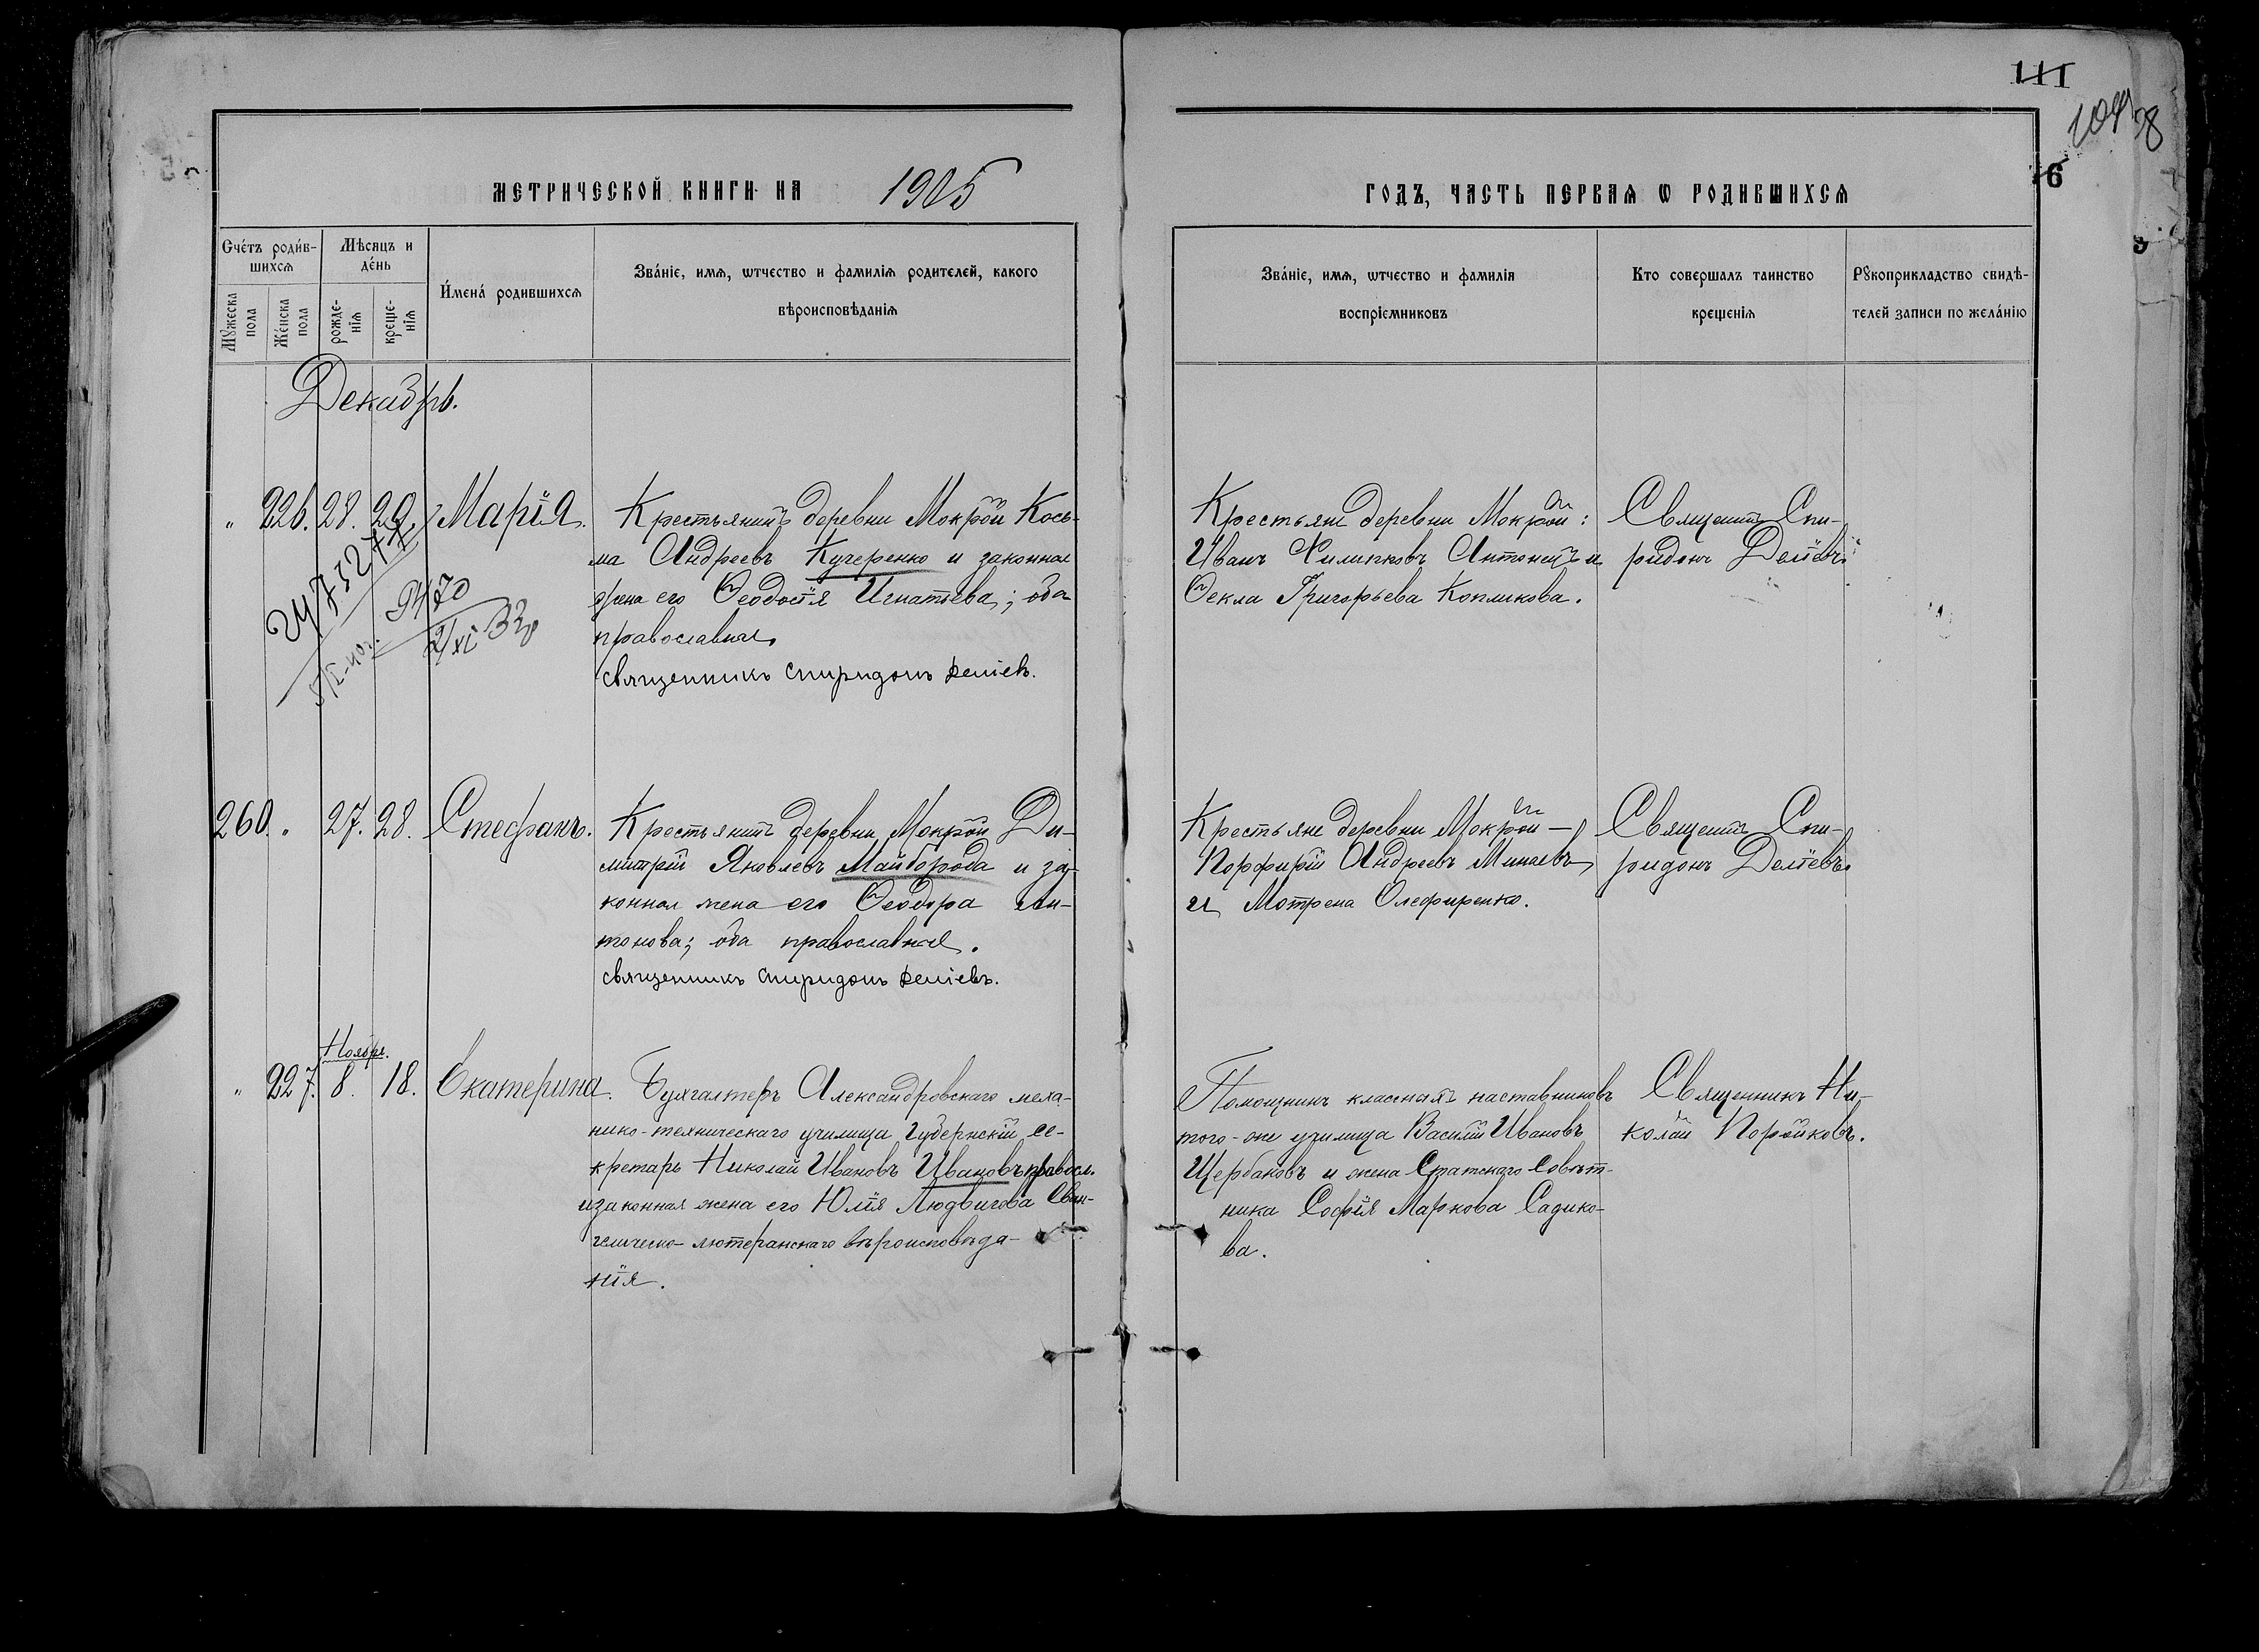 111
104
98
6
МЕТРИЧЕСКОЙ КНИГИ НА 1905 ГОДЪ, ЧАСТЬ ПЕРВАЯ Ѡ РОДИВШИХСЯ
Счетъ родив-
шихся
Мѣсяцъ и
день
Имена родившихся
Званіе, имя, ѡтчество и фамилія родителей, какого
вѣроисповѣданія
Званіе, имя, ѡтчество и фамилія
воспріемниковъ
Кто совершалъ таинство
крещенія
Рꙋкоприкладство свидѣ-
телей записи по желанію
Мꙋжеска
пола
Женска
пола
рожде-
нія
креще-
нія
Декабрь.
" 226. 28. 29. Марія.
Крестьянинъ деревни Мокрой Кось-
ма Андреевъ Кучеренко и законная
жена его Ѳеодосія Игнатьева; оба
православные.
Священникъ Спиридонъ Деліевъ.
Крестьяне деревни Мокрой:
Иванъ Филипповъ Антонецъ и
Ѳекла Григорьева Копликова.
Священ. Спи-
ридонъ Деліевъ.
260. " 27. 28. Стефанъ.
Крестьянинъ деревни Мокрой Ди-
митрій Яковлевъ Майборода и за-
конная жена его Ѳеодора Ан-
тонова; оба православные.
Священникъ Спиридонъ Деліевъ.
Крестьяне деревни Мокрой —
Порфирій Андреевъ Минаевъ
и Мотрена Олефиренко.
Священ. Спи-
ридонъ Деліевъ.
Ноября.
" 227. 8. 18. Екатерина.
Бухгалтеръ Александровскаго меха-
нико-техническаго училища Губернскій Се-
кретарь Николай Ивановъ Ивановъ правосл.
и законная жена его Юлія Людвигова Еван-
гелическо-лютеранскаго вѣроисповѣда-
нія.
Помощникъ классныхъ наставниковъ
того-же училища Василій Ивановъ
Щербаковъ и жена Статскаго Совѣт-
ника Софія Маркова Садико-
ва.
Священникъ Ни-
колай Поройковъ.